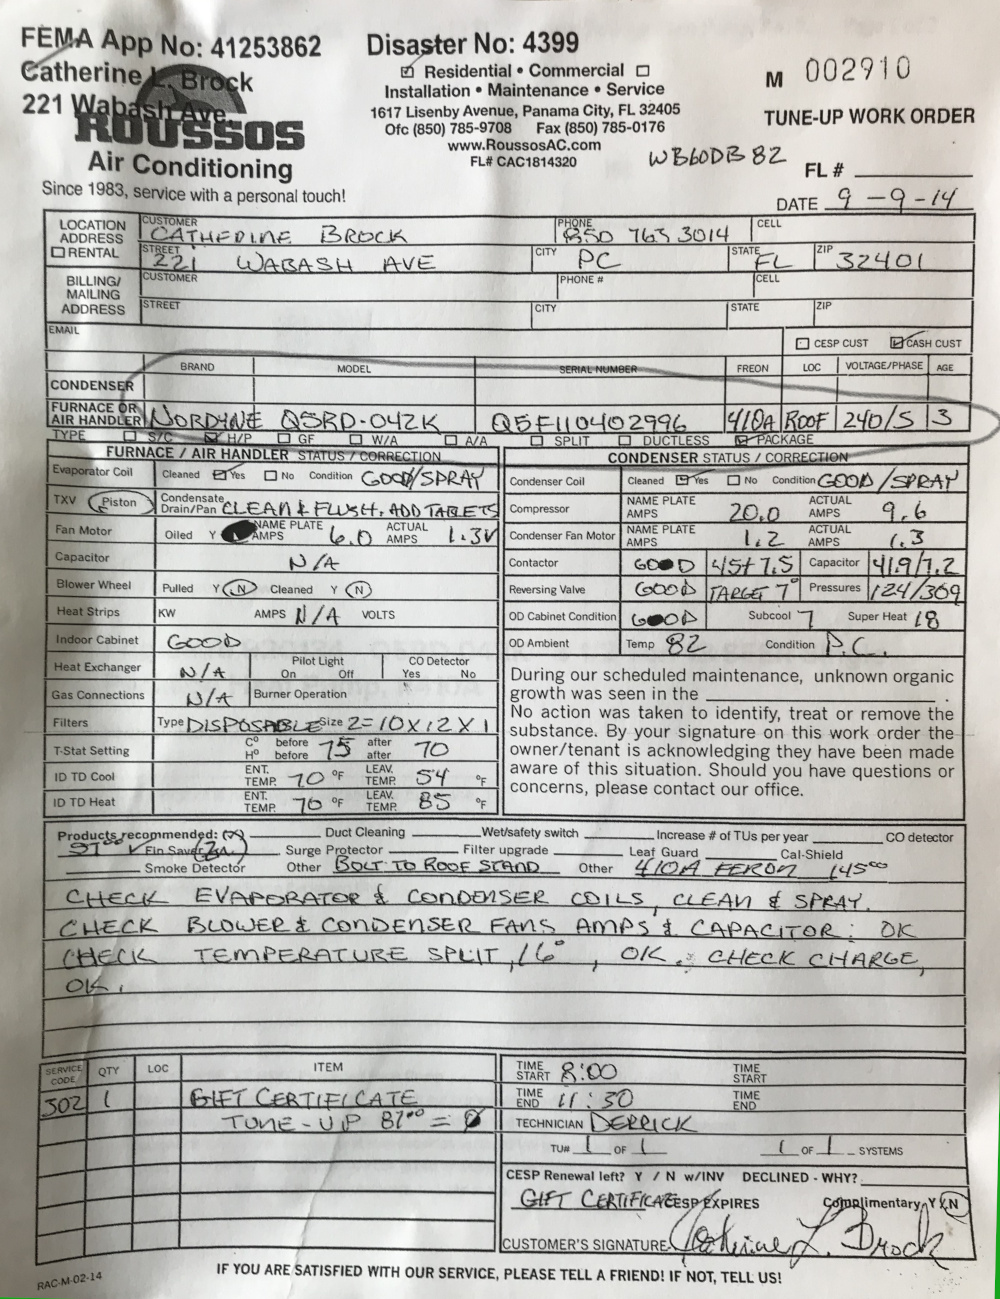 FEMA App No: 41253862 Disaster No: 4399
Catherine L. Brock
221 Wabash Ave.
ROUSSOS
Air Conditioning
Since 1983, service with a personal touch!
☑ Residential • Commercial ☐
Installation • Maintenance • Service
1617 Lisenby Avenue, Panama City, FL 32405
Ofc (850) 785-9708 Fax (850) 785-0176
www.RoussosAC.com
FL# CAC1814320
WB60DB82
M 002910
TUNE-UP WORK ORDER
FL #
DATE 9-9-14
LOCATION ADDRESS ☐ RENTAL
CUSTOMER CATHERINE BROCK PHONE 850 763 3014 CELL
STREET 221 WABASH AVE CITY PC STATE FL ZIP 32401
BILLING/ MAILING ADDRESS
CUSTOMER PHONE # CELL
STREET CITY STATE ZIP
EMAIL
☐ CESP CUST ☑ CASH CUST
BRAND MODEL SERIAL NUMBER FREON LOC VOLTAGE/PHASE AGE
CONDENSER
FURNACE OR AIR HANDLER NORDYNE Q5RD-042K Q5F110402996 410A ROOF 240/S 3
TYPE ☐ S/C ☑ H/P ☐ GF ☐ W/A ☐ A/A ☐ SPLIT ☐ DUCTLESS ☑ PACKAGE
FURNACE / AIR HANDLER STATUS / CORRECTION
Evaporator Coil Cleaned ☑ Yes ☐ No Condition GOOD/SPRAY
TXV Piston Condensate Drain/Pan CLEAN & FLUSH, ADD TABLETS
Fan Motor Oiled Y N NAME PLATE AMPS 6.0 ACTUAL AMPS
Capacitor N/A
Blower Wheel Pulled Y N Cleaned Y N
Heat Strips KW AMPS N/A VOLTS
Indoor Cabinet GOOD
Heat Exchanger N/A Pilot Light On Off CO Detector Yes No
Gas Connections N/A Burner Operation
Filters Type DISPOSABLE Size 2=10X12X1
T-Stat Setting C° before H° before 75 after after 70
ID TD Cool ENT. TEMP. 70 °F LEAV. TEMP. 54 °F
ID TD Heat ENT. TEMP. 70 °F LEAV. TEMP. 85 °F
CONDENSER STATUS / CORRECTION
Condenser Coil Cleaned ☑ Yes ☐ No Condition GOOD/SPRAY
Compressor NAME PLATE AMPS 20.0 ACTUAL AMPS 9.6
Condenser Fan Motor NAME PLATE AMPS 1.2 ACTUAL AMPS 1.3
Contactor GOOD 45+7.5 Capacitor 41.9/7.2
Reversing Valve GOOD TARGET 7° Pressures 124/309
OD Cabinet Condition GOOD Subcool 7 Super Heat 18
OD Ambient Temp 82 Condition P.C.
During our scheduled maintenance, unknown organic
growth was seen in the
No action was taken to identify, treat or remove the
substance. By your signature on this work order the
owner/tenant is acknowledging they have been made
aware of this situation. Should you have questions or
concerns, please contact our office.
Products recommended: Duct Cleaning Wet/safety switch Increase # of TUs per year CO detector
Fin Saver Surge Protector Filter upgrade Leaf Guard Cal-Shield
Smoke Detector Other BOLT TO ROOF STAND Other 410A FERON 145.00
CHECK EVAPORATOR & CONDENSER COILS, CLEAN & SPRAY.
CHECK BLOWER & CONDENSER FANS AMPS & CAPACITOR: OK
CHECK TEMPERATURE SPLIT, 16°, OK. CHECK CHARGE,
OK.
SERVICE CODE QTY LOC ITEM
502 1 GIFT CERTIFICATE
TUNE-UP 87.00 = 0
TIME START 8:00 TIME START
TIME END 11:30 TIME END
TECHNICIAN DERRICK
TU# 1 OF 1 1 OF 1 SYSTEMS
CESP Renewal left? Y / N w/INV DECLINED - WHY?
GIFT CERTIFICATE CESP EXPIRES Complimentary Y N
CUSTOMER'S SIGNATURE Catherine L. Brock
RAC-M-02-14
IF YOU ARE SATISFIED WITH OUR SERVICE, PLEASE TELL A FRIEND! IF NOT, TELL US!